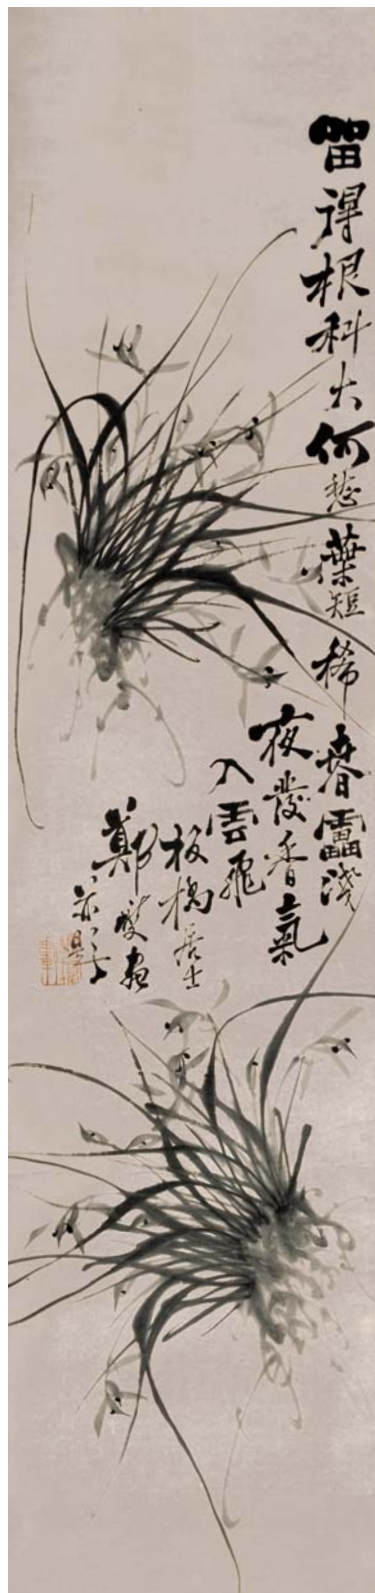 留得根科大何愁葉短稀春雷淺
夜發香氣
入雲飛
板橋居士
鄭燮畫